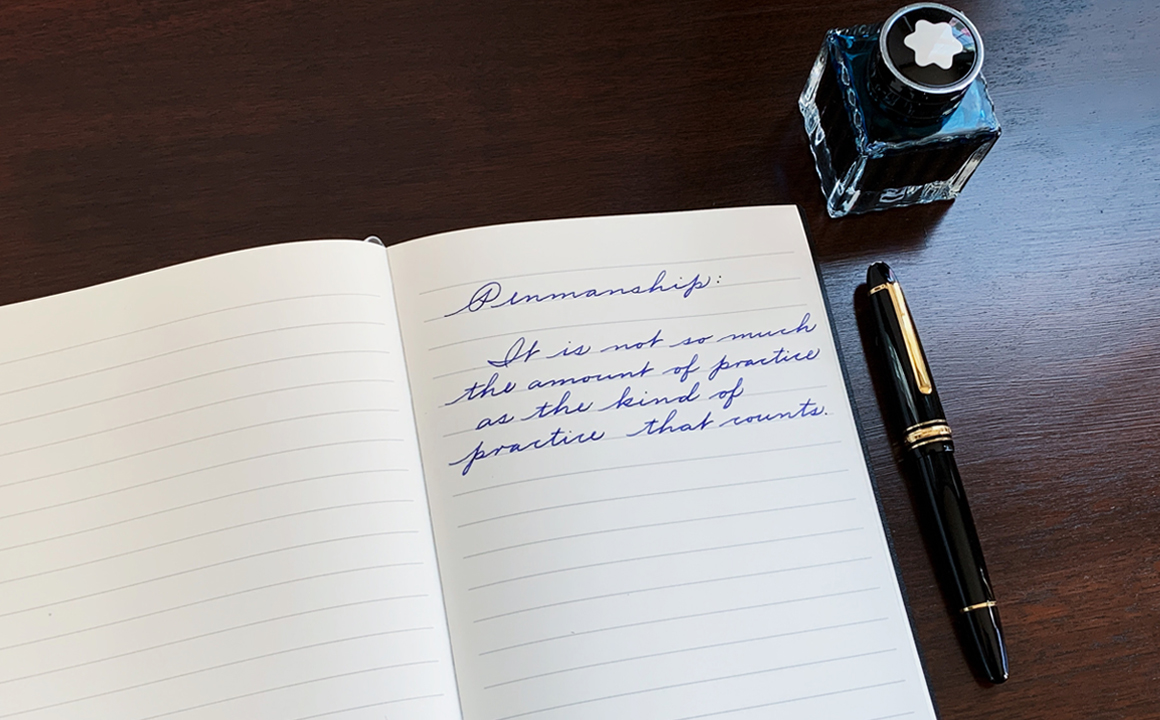 Penmanship:
It is not so much
the amount of practice
as the kind of
practice that counts.